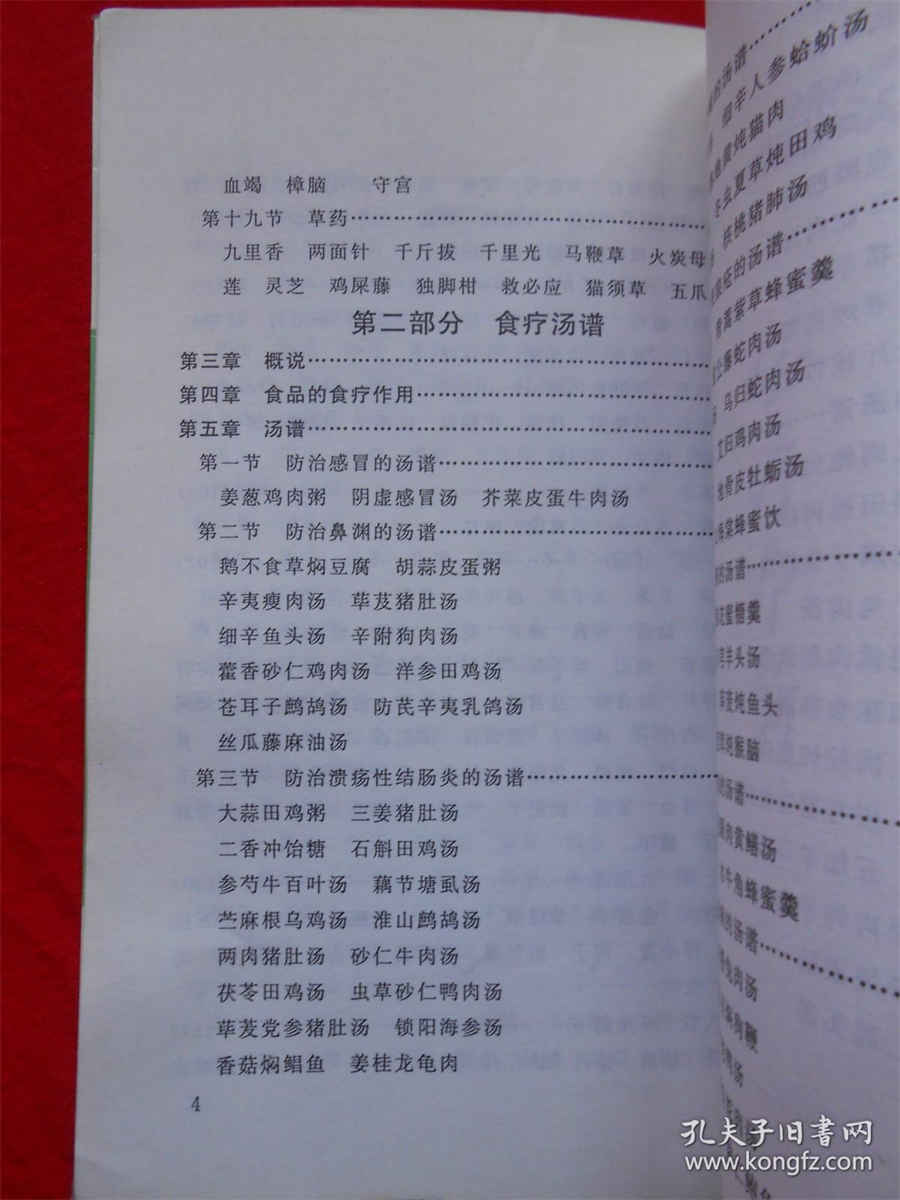 血竭 樟脑 守宫
第十九节 草药……………………………
九里香 两面针 千斤拔 千里光 马鞭草 火炭母
莲 灵芝 鸡屎藤 独脚柑 救必应 猫须草 五爪
第二部分 食疗汤谱
第三章 概说……………………………
第四章 食品的食疗作用……………………
第五章 汤谱……………………………
第一节 防治感冒的汤谱……………………
姜葱鸡肉粥 阴虚感冒汤 芥菜皮蛋牛肉汤
第二节 防治鼻渊的汤谱……………………
鹅不食草焖豆腐 胡蒜皮蛋粥
辛夷瘦肉汤 荜茇猪肚汤
细辛鱼头汤 辛附狗肉汤
藿香砂仁鸡肉汤 洋参田鸡汤
苍耳子鹧鸪汤 防芪辛夷乳鸽汤
丝瓜藤麻油汤
第三节 防治溃疡性结肠炎的汤谱………………
大蒜田鸡粥 三姜猪肚汤
二香冲饴糖 石斛田鸡汤
参芍牛百叶汤 藕节塘虱汤
苎麻根乌鸡汤 淮山鹧鸪汤
两肉猪肚汤 砂仁牛肉汤
茯苓田鸡汤 虫草砂仁鸭肉汤
荜茇党参猪肚汤 锁阳海参汤
香菇焖鲳鱼 姜桂龙龟肉
4
的汤谱…………
细辛人参蛤蚧汤
地黄炖猫肉
冬虫夏草炖田鸡
核桃猪肺汤
的汤谱…………
青蒿紫草蜂蜜羹
秦蛇肉汤
乌归蛇肉汤
艾归鸡肉汤
地骨皮牡蛎汤
海棠蜂蜜饮
汤谱…………
花蜜糖羹
羊头汤
炖鱼头
炖猴脑
汤谱…………
肉黄鳝汤
牛角蜂蜜羹
的汤谱…………
兔肉汤
狗鞭
汤
孔夫子旧书网
www.kongfz.com